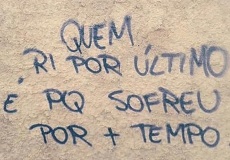 QUEM
RI POR ÚLTIMO
É PQ SOFREU
POR + TEMPO